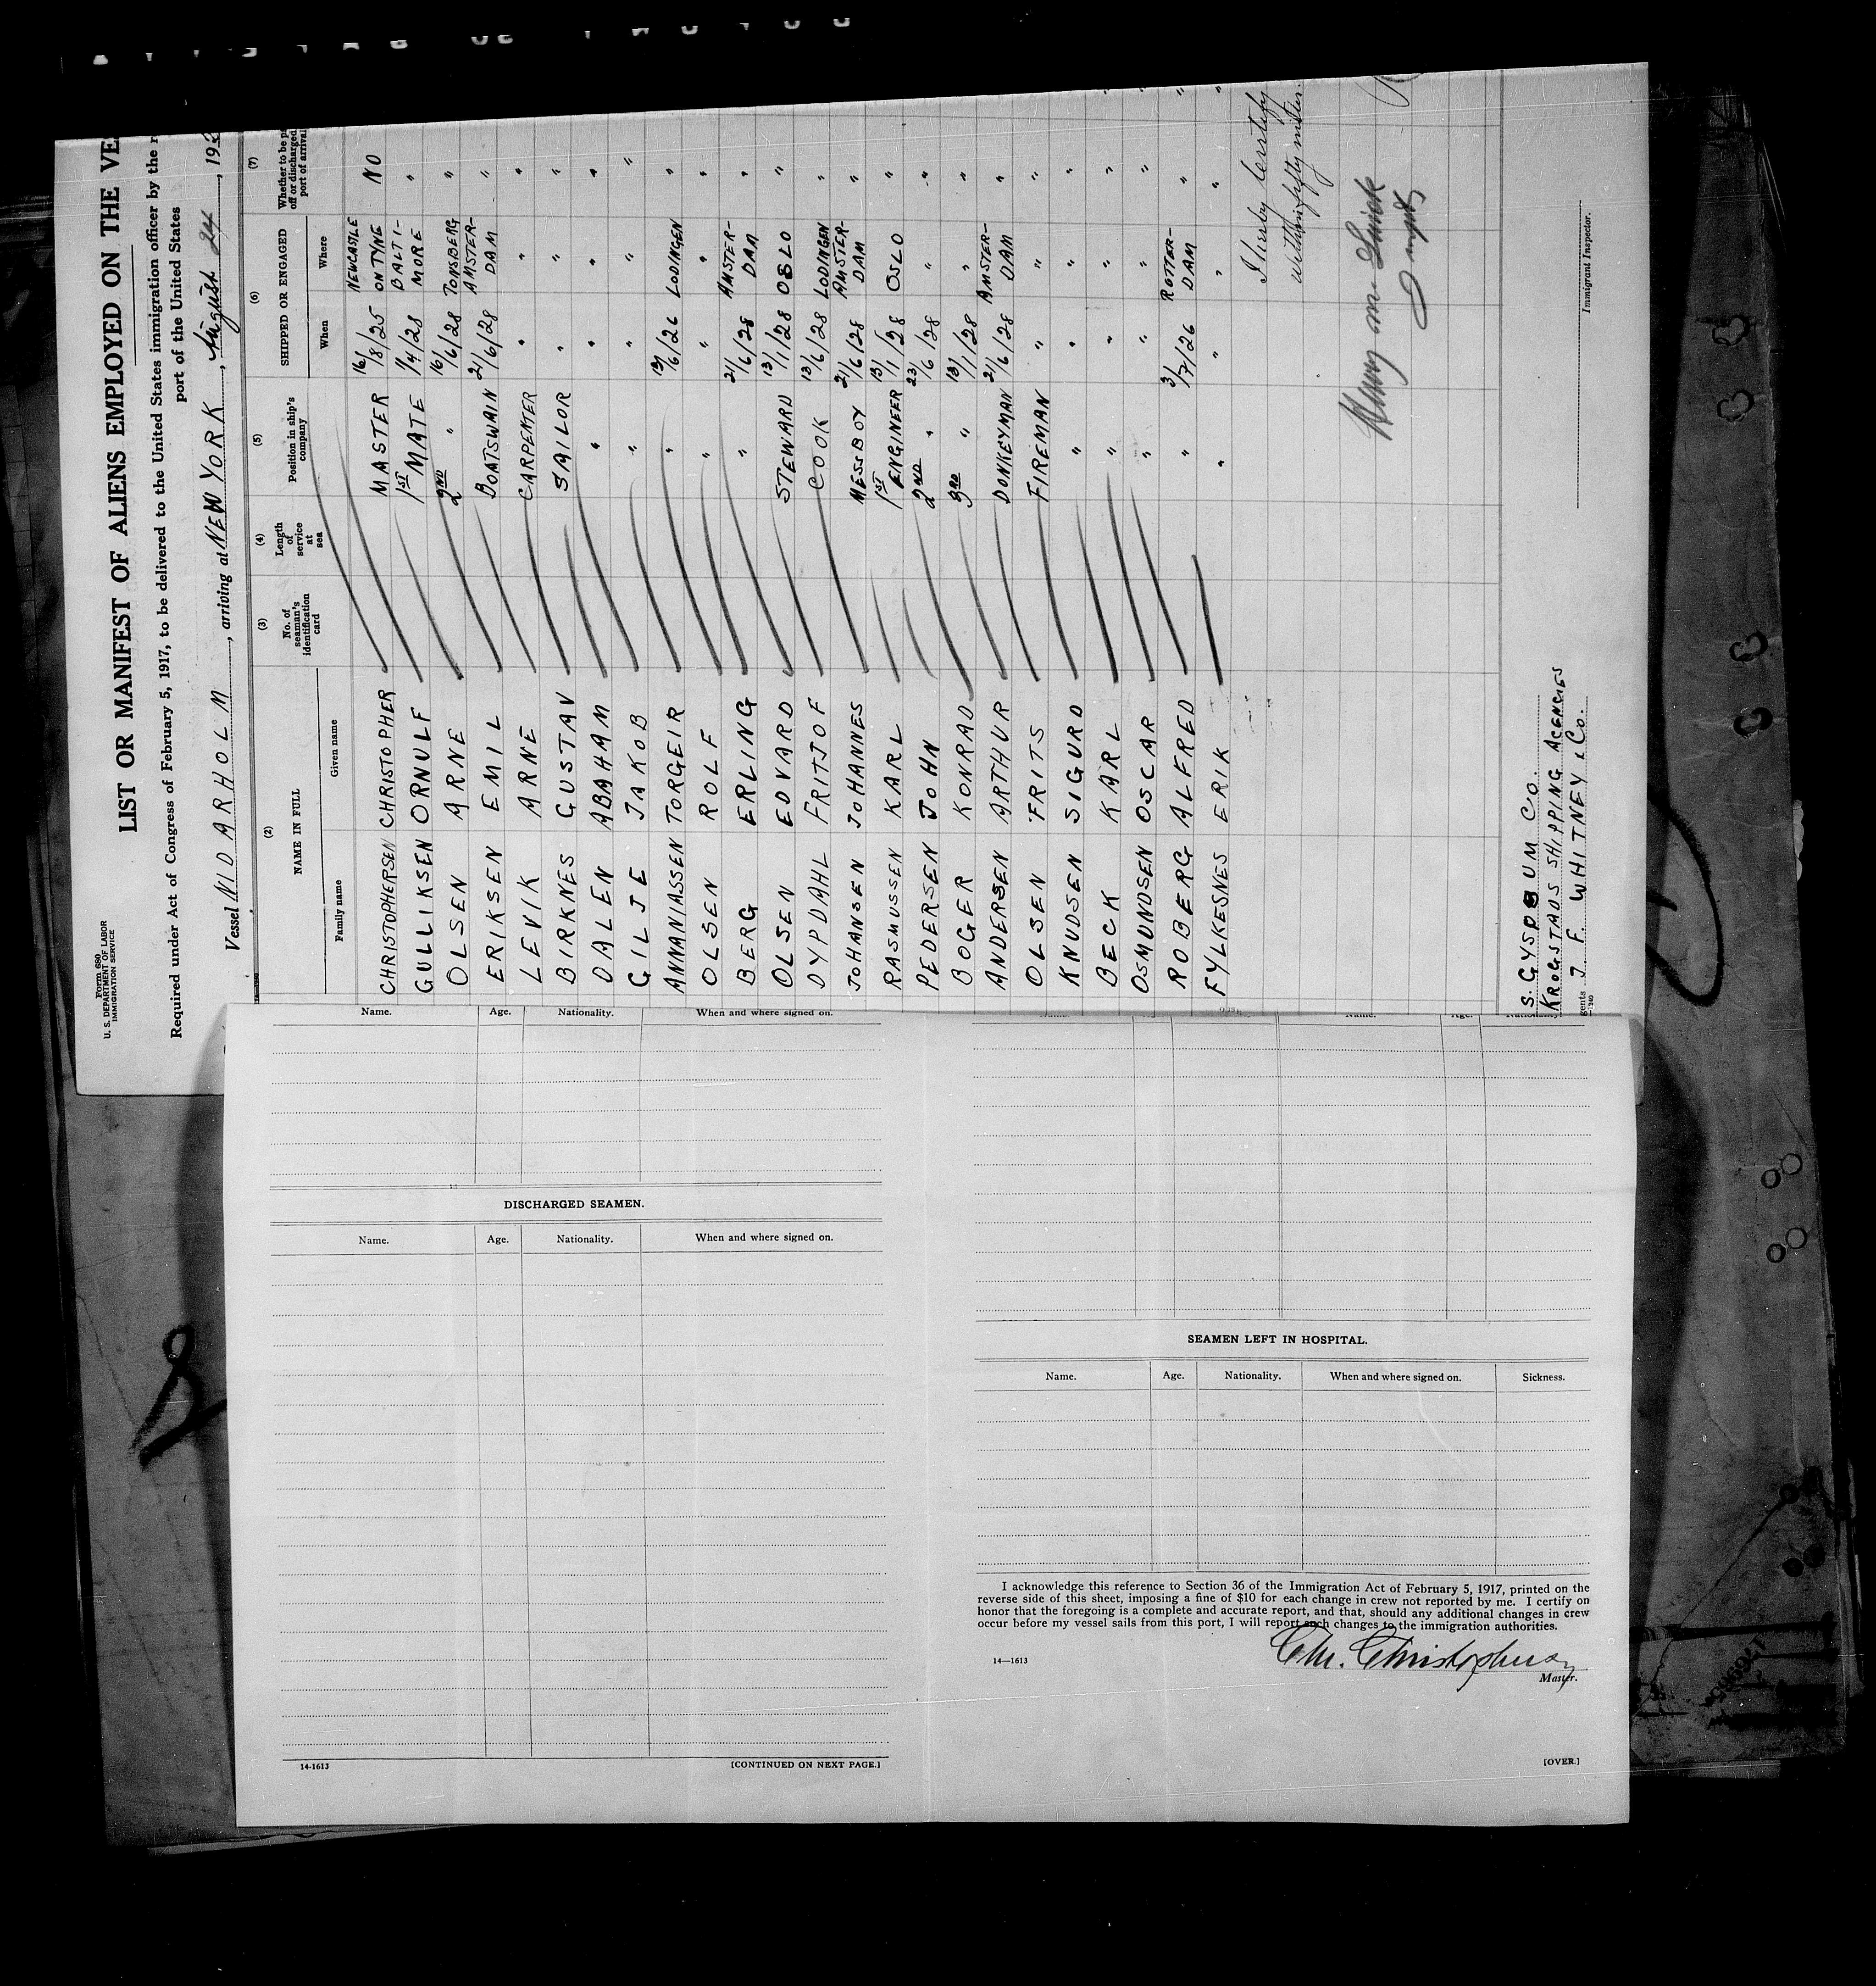 Form 680
U. S. DEPARTMENT OF LABOR
IMMIGRATION SERVICE
LIST OR MANIFEST OF ALIENS EMPLOYED ON THE VE
Required under Act of Congress of February 5, 1917, to be delivered to the United States immigration officer by the r
port of the United States
Vessel NIDARHOLM, arriving at NEW YORK, August 24, 192
(2) (3) (4) (5) (6) (7)
NAME IN FULL No. of seaman's identification card Length of service at sea Position in ship's company SHIPPED OR ENGAGED Whether to be p off or discharged port of arrival
Family name Given name When Where
CHRISTOPHERSEN CHRISTOPHER MASTER 16/8/25 NEWCASTLE ON TYNE NO
GULLIKSEN ORNULF 1ST MATE 1/4/28 BALTI-MORE "
OLSEN ARNE 2ND " 16/6/28 TONSBERG "
ERIKSEN EMIL BOATSWAIN 21/6/28 AMSTER-DAM "
LEVIK ARNE CARPENTER " " "
BIRKNES GUSTAV SAILOR " " "
DALEN ABAHAM " " " "
GILJE JAKOB " " " "
ANNANIASSEN TORGEIR " 13/6/26 LODINGEN "
OLSEN ROLF " " " "
BERG ERLING " 21/6/28 AMSTER-DAM "
OLSEN EDVARD STEWARD 13/1/28 OSLO "
DYPDAHL FRITJOF COOK 13/6/28 LODINGEN "
JOHANSEN JOHANNES MESSBOY 21/6/28 AMSTER-DAM "
RASMUSSEN KARL 1ST ENGINEER 13/1/28 OSLO "
PEDERSEN JOHN 2ND " 23/6/28 " "
BOGER KONRAD 3RD " 13/1/28 " "
ANDERSEN ARTHUR DONKEYMAN 21/6/28 AMSTER-DAM "
OLSEN FRITS FIREMAN " " "
KNUDSEN SIGURD " " " "
BECK KARL " " " "
OSMUNDSEN OSCAR " " " "
ROBERG ALFRED " 3/7/26 ROTTER-DAM "
FYLKESNES ERIK " " " "
I hereby certify
within fifty miles.
Immigrant Inspector.
S. GYSPSUM CO.
KROGSTADS SHIPPING AGENCIES
gents J. F. WHITNEY & Co.
Name. Age. Nationality. When and where signed on.
DISCHARGED SEAMEN.
Name. Age. Nationality. When and where signed on.
14-1613 [CONTINUED ON NEXT PAGE.]
Name. Age. Nationality.
SEAMEN LEFT IN HOSPITAL.
Name. Age. Nationality. When and where signed on. Sickness.
I acknowledge this reference to Section 36 of the Immigration Act of February 5, 1917, printed on the
reverse side of this sheet, imposing a fine of $10 for each change in crew not reported by me. I certify on
honor that the foregoing is a complete and accurate report, and that, should any additional changes in crew
occur before my vessel sails from this port, I will report such changes to the immigration authorities.
Chr. Christophersen
14—1613 Master.
[OVER.]